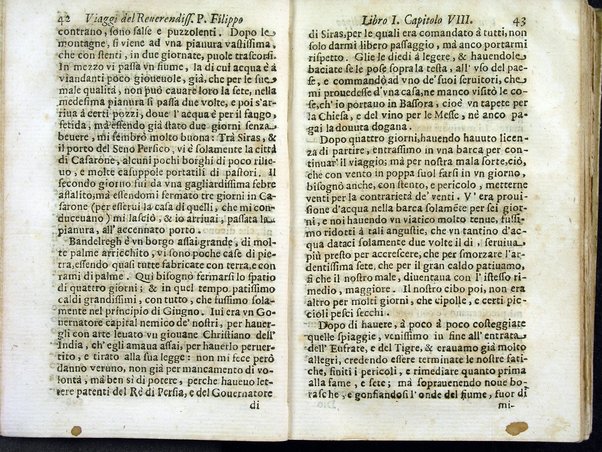 42 Viaggi del Reuerendiss. P. Filippo
contrano, sono salse e puzzolenti. Dopo le
montagne, si viene ad vna pianura vastissima,
che con stenti, in due giornate, puole trascorsi.
In mezzo vi passa vn fiume, la di cui acqua è a
viandanti poco gioueuole, già, che per le sue
male qualità, non può cauare loro la sete, nella
medesima pianura si passa due volte, e poi s'ar-
riua à certi pozzi, doue l'acqua è per il fango,
fetida, ma essendo già stato due giorni senza
beuere, mi sembrò molto buona: Trà Siras, &
il porto del Seno Persico, vi è solamente la città
di Casarone, alcuni pochi borghi di poco rilie-
uo, e molte casuppole portatili di pastori. Il
secondo giorno fui da vna gagliardissima febre
assalito; ma essendomi fermato tre giorni in Ca-
sarone (per essersui la casa di quelli, che mi con-
duceuano) mi lasciò, & io arriuai, passata la
pianura, all'accennato porto.
Bandelregh è vn borgo assai grande, di mol-
te palme arriechito, vi sono poche case di pie-
tra, essendo quasi tutte fabricate con terra, e con
rami di palme. Qui bisognò fermarsi lo spatio
di quattro giorni; & in quel tempo patissimo
caldi grandissimi, con tutto, che fussimo sola-
mente nel principio di Giugno. Iui era vn Go-
uernatore capital nemico de' nostri, per hauer-
gli con arte leuato vn giouane Christiano dell'
India, ch'egli amaua assai, per hauerlo peruer-
tito, e tirato alla sua legge: non mi fece però
danno veruno, non già per mancamento di vo-
lontà, ma ben sì di potere, perche haueuo let-
tere patenti del Rè di Persia, e del Gouernatore
di
Libro I. Capitolo VIII. 43
di Siras, per le quali era comandato à tutti, non
solo darmi libero passaggio, ma anco portarmi
rispetto. Glie le diedi à legere, & hauendole
baciate se le pose sopra la testa, all'vso del pae-
se, e commandò ad vno de' suoi seruitori, che
mi prouedesse d'vna casa, ne manco visitò le co-
se, ch'io portauo in Bassora, cioè vn tapete per
la Chiesa, e del vino per le Messe, nè anco pa-
gai la douuta dogana.
Dopo quattro giorni, hauendo hauuto licen-
za di partire, entrassimo in vna barca per con-
tinuar' il viaggio; ma per nostra mala sorte, ciò,
che con vento in poppa suol farsi in vn giorno,
bisognò anche, con stento, e pericolo, metterne
venti per la contrarietà de' venti. V'era proui-
sione d'acqua nella barca solamente per sei gior-
ni, e noi hauendo vn viatico molto tenue, fussi-
mo ridotti à tali angustie, che vn tantino d'ac-
qua dataci solamente due volte il dì, seruiua
più presto per accrescere, che per smorzare l'ar-
dentissima sete, che per il gran caldo patiuamo,
sì che il nostro male, diuentaua con l'istesso ri-
medio, maggiore. Il nostro cibo poi, non era
altro per molti giorni, che cipolle, e certi pic-
cioli pesci secchi.
Dopo di hauere, à poco à poco costeggiate
quelle spiaggie, venissimo in fine all'entrata
dell'Eufrate, e del Tigre, & erauamo già molto
allegri, credendo essere terminate le nostre fati-
che, finiti i pericoli, e rimediare quanto prima
alla fame, e sete; mà soprauenendo noue bo-
rasche, e gonfiandosi l'onde del fiume, fuor di
mi-